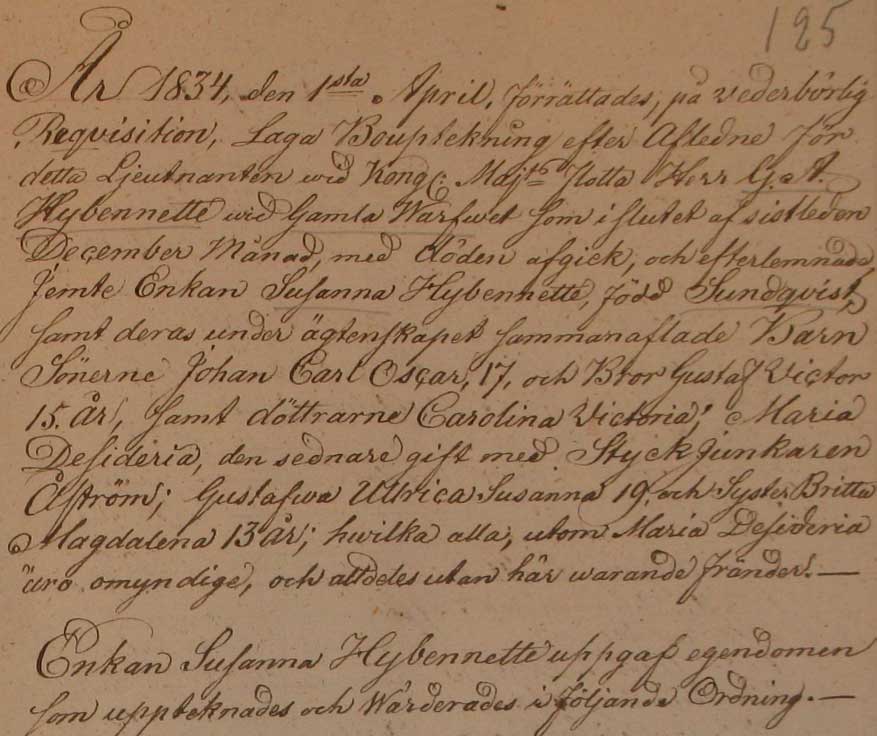 125
År 1834, den 1sta April, förrättades, på vederbörlig
Reqvisition, Laga Bouptekning efter Afledne för
detta Ljeutnanten wid Kongl: Majts flotta Herr G. A.
Hybennette wid Gamla Warfwet som i slutet af sistleden
December Månad, med döden afgick, och efterlemnade
jemte Enkan Susanna Hybennette, född Sundqvist,
samt deras under ägtenskapet sammanaflade Barn
Sönerne Johan Carl Oscar, 17, och Bror Gustaf Victor
15. År, samt döttrarne Carolina Victoria, Maria
Desideria, den sednare gift med Styckjunkaren
Åström; Gustafwa Ulrica Susanna 19. och Syster Britta
Magdalena 13 År; hwilka alla, utom Maria Desideria
äro omyndige, och alldeles utan här warande fränder. —
Enkan Susanna Hybennette uppgaf egendomen
som uppteknades och Wärderades i följande Ordning. —